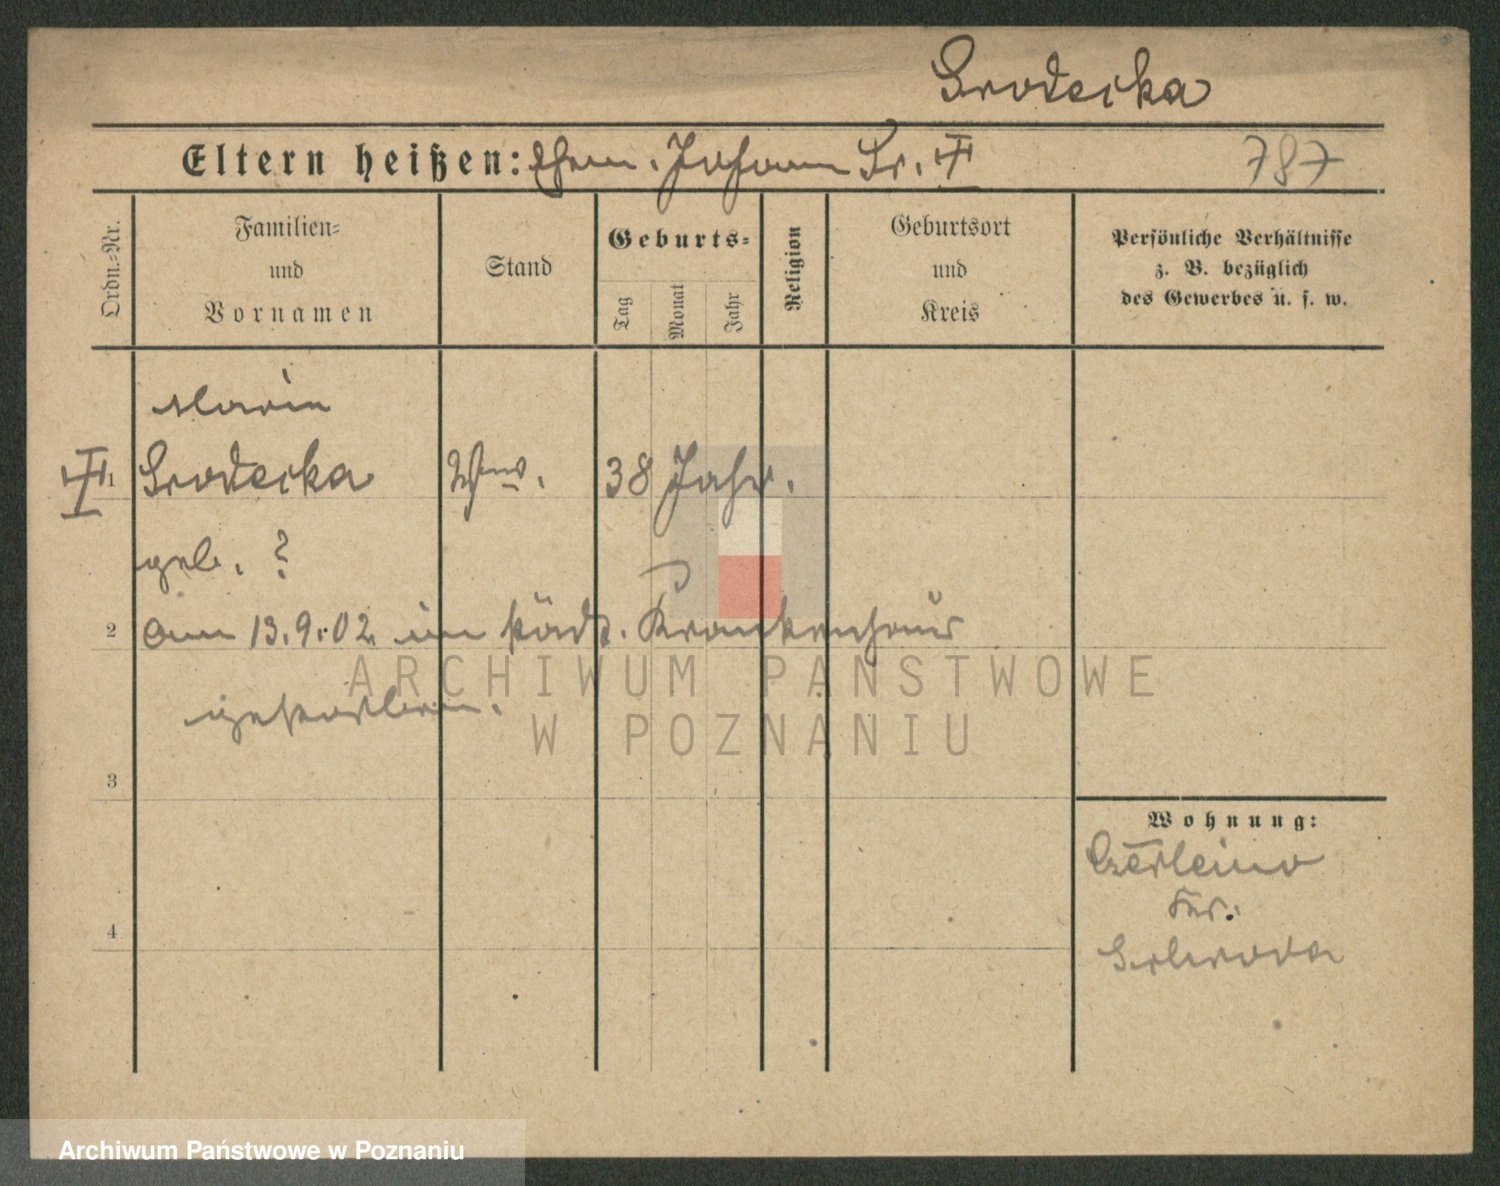 Srodecka
Eltern heißen: Ehem. Johann Sr. †
787
Ordn.-Nr.
Familien-
und
Vornamen
Stand
Geburts-
Tag
Monat
Jahr
Religion
Geburtsort
und
Kreis
Persönliche Verhältnisse
z. B. bezüglich
des Gewerbes u. s. w.
Maria
† 1 Srodecka Ww. 38 Jahr.
geb. ?
2 am 13.9.02 im städt. Krankenhaus
gestorben.
ARCHIWUM PAŃSTWOWE
W POZNANIU
3
Wohnung:
Krs.
Schroda
4
Archiwum Państwowe w Poznaniu